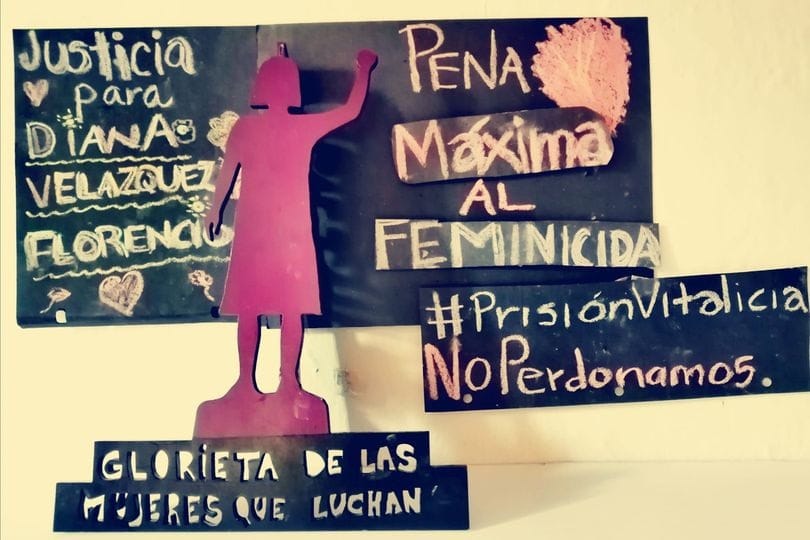 Justicia
para
DIANA
VELAZQUEZ
FLORENCIO
PENA
Máxima
AL
FEMINICIDA
#PrisiónVitalicia
N.oPerdonamos.
GLORIETA DE LAS
MUJERES QUE LUCHAN